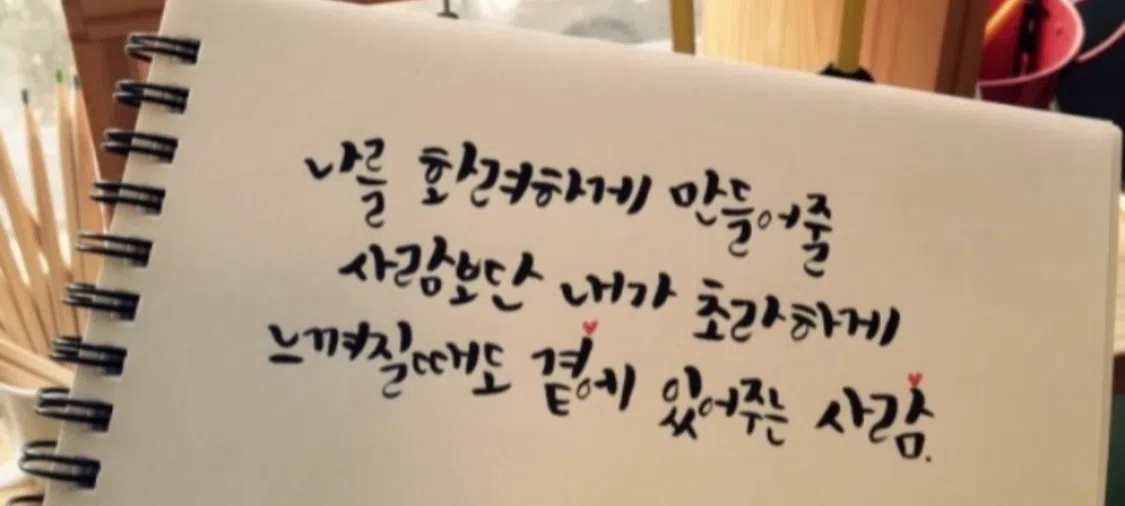 나를 화려하게 만들어줄
사람보단 내가 초라하게
느껴질때도 곁에 있어주는 사람.